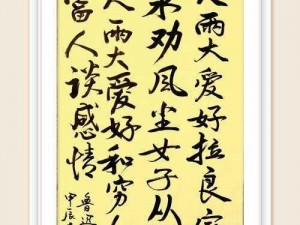 人两大爱好拉良家
水劝风尘女子从
人两大爱好和穷人
富人谈感情
鲁迅
甲辰